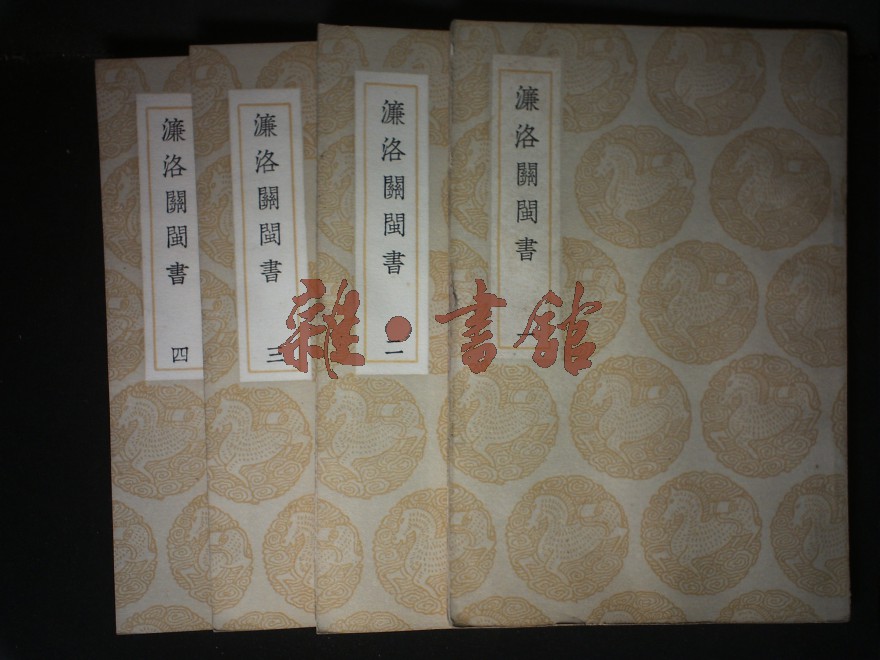 濂洛關閩書
一
濂洛關閩書
二
濂洛關閩書
三
濂洛關閩書
四
雜·書館